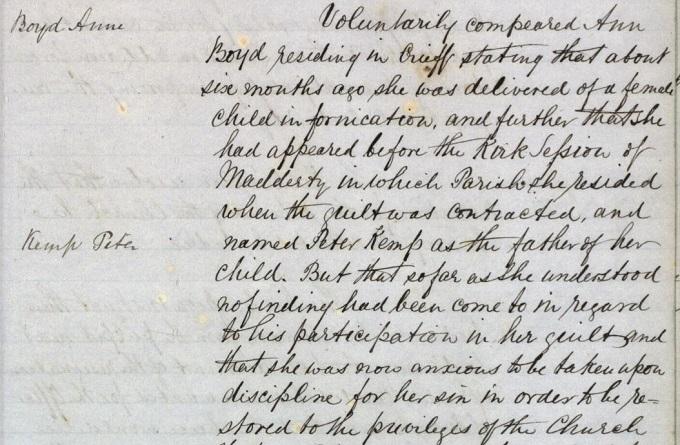 Boyd Anne
Voluntarily compeared Ann
Boyd residing in Crieff stating that about
six months ago she was delivered of a female
child in fornication, and further that she
had appeared before the Kirk Session of
Madderty in which Parish she resided
when the guilt was contracted, and
Kemp Peter
named Peter Kemp as the father of her
child. But that so far as she understood
no finding had been come to in regard
to his participation in her guilt and
that she was now anxious to be taken upon
discipline for her sin in order to be re-
stored to the privileges of the Church